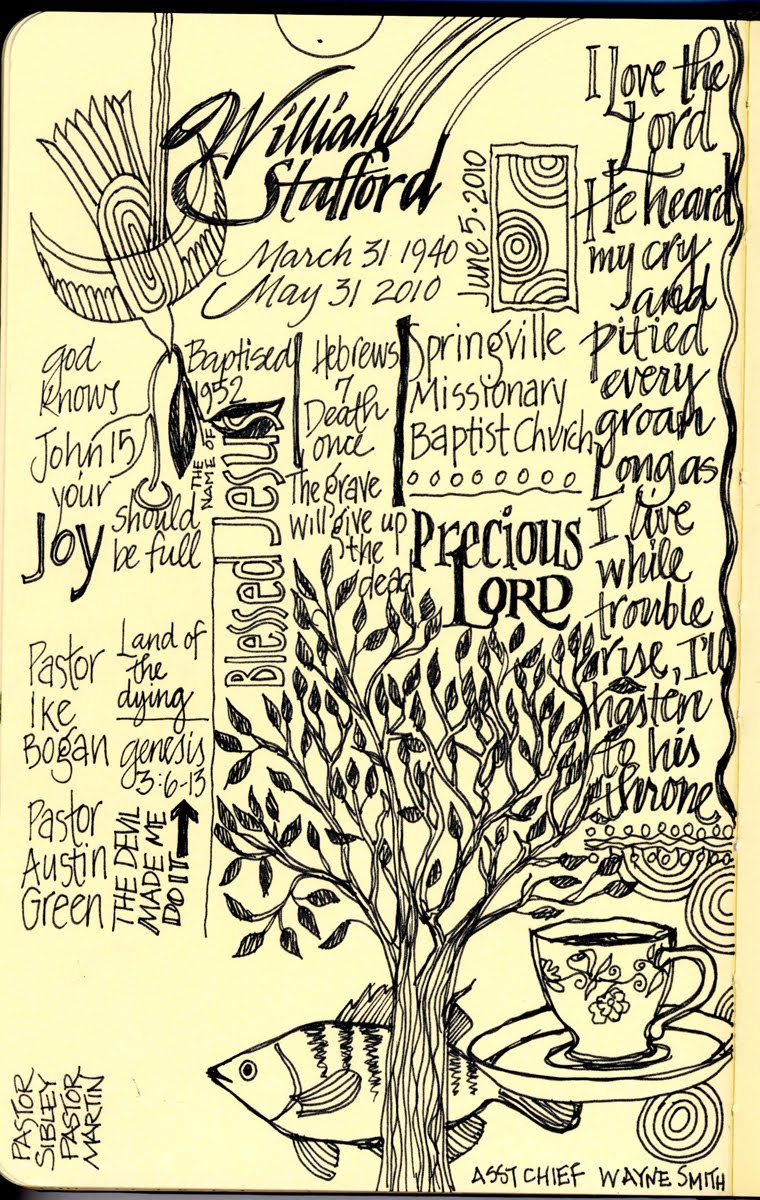 William
Stafford
March 31 1940
May 31 2010
June 5 · 2010
I love the
Lord
He heard
my cry
and
pitied
every
groan
Long as
I live
while
trouble
rise, I'll
hasten
to his
throne
god
knows
John 15
your
Joy
should
be full
Baptised
1952
THE
NAME OF
Blessed Jesus
Hebrews
7
Death
once
The grave
will give up
the
dead
Springville
Missionary
Baptist Church
Precious
LORD
Pastor
Ike
Bogan
Pastor
Austin
Green
Land of
the
dying
genesis
3:6-13
THE DEVIL
MADE ME
DO IT
PASTOR
SIBLEY
PASTOR
MARTIN
ASST CHIEF WAYNE SMITH